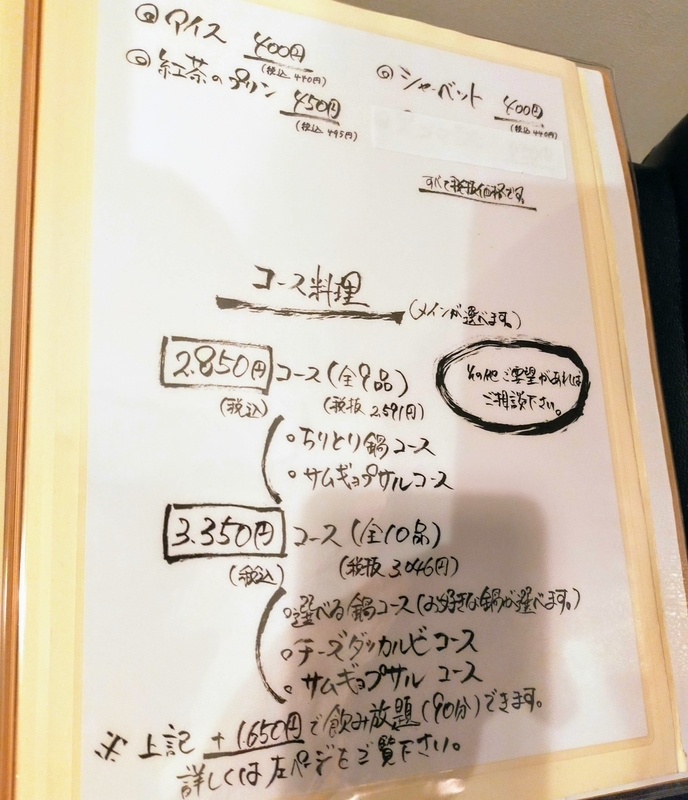 ◎ アイス 400円
(税込 440円)
◎ シャーベット 400円
(税込 440円)
◎ 紅茶のプリン 450円
(税込 495円)
すべて税抜価格です。
コース料理
(メインが選べます。)
2.850円 コース (全9品)
(税込) (税抜 2.591円)
その他ご要望があれば
ご相談下さい。
○ちりとり鍋コース
○サムギョプサルコース
3.350円 コース (全10品)
(税込) (税抜 3.046円)
○選べる鍋コース (お好きな鍋が選べます。)
○チーズダッカルビコース
○サムギョプサル コース
※ 上記 +1.650円で飲み放題(90分)できます。
詳しくは左ページをご覧下さい。